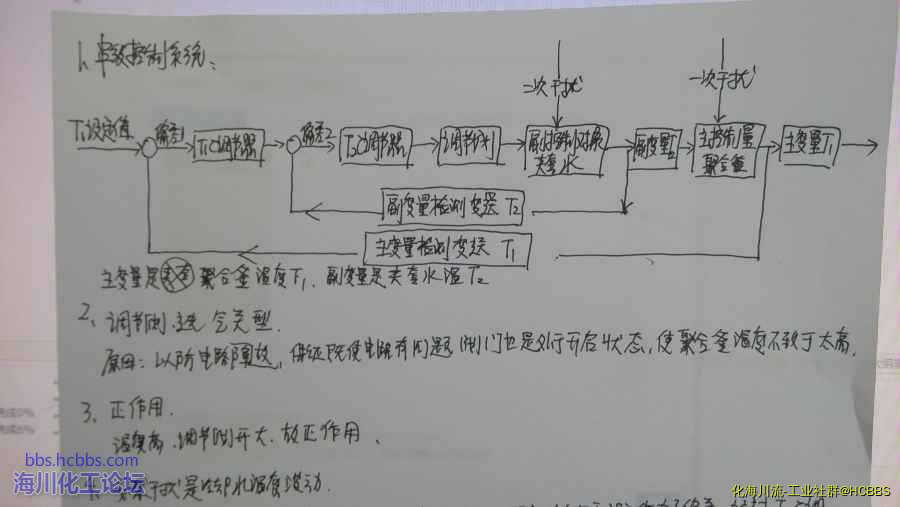 1、串级控制系统:
二次干扰
一次干扰
T1设定值
偏差1
T1C调节器
偏差2
T2C调节器
调节阀
副对控制对象
夹套水
副变量T2
主控制量
聚合釜
主变量T1
副变量检测变送 T2
主变量检测变送 T1
主变量是 聚合釜温度T1、副变量是夹套水温T2
2、调节阀选 气关型.
原因: 以防电路 故, 保证即使电路有问题 阀门也是处于开启状态, 使聚合釜温度不致于太高.
3、正作用.
温度高、调节阀开大、故正作用、
干扰是冷却水温度波动.
bbs.hcbbs.com
海川化工论坛
化海川流-工业社群@HCBBS